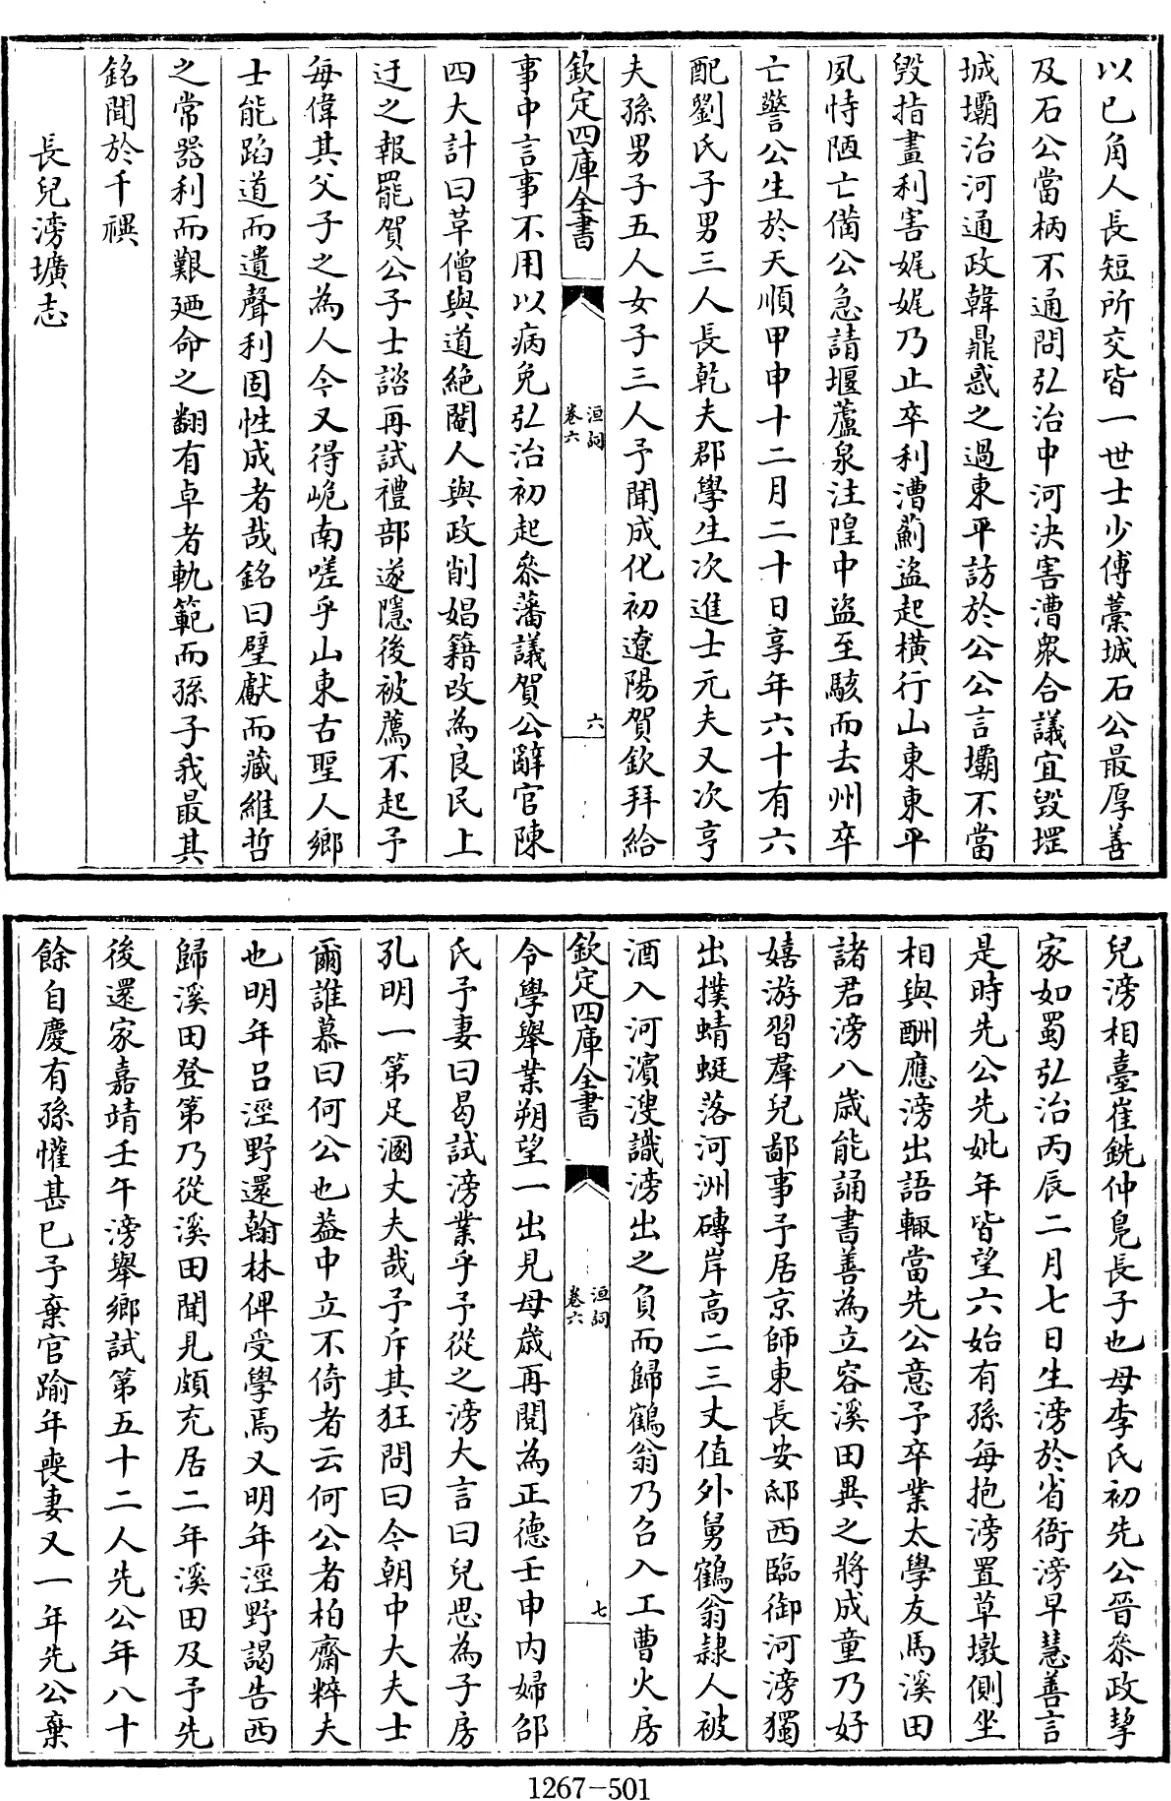 以已角人長短所交皆一世士少傅藁城石公最厚善
及石公當柄不通問弘治中河決害漕衆合議宜毀堽
城壩治河通政韓鼎惑之過東平訪於公公言壩不當
毀指畫利害娓娓乃止卒利漕薊盜起橫行山東東平
夙恃陋亡備公急請堰蘆泉注隍中盜至駭而去州卒
亡警公生於天順甲申十二月二十日享年六十有六
配劉氏子男三人長乾夫郡學生次進士元夫又次亨
夫孫男子五人女子三人予聞成化初遼陽賀欽拜給
欽定四庫全書
洹詞
卷六
六
事中言事不用以病免弘治初起叅藩議賀公辭官陳
四大計曰草僧與道絶閹人與政削娼籍改為良民上
迂之報罷賀公子士諮再試禮部遂隱後被薦不起予
每偉其父子之為人今又得峗南嗟乎山東古聖人鄉
士能蹈道而遺聲利固性成者哉銘曰璧獻而藏維哲
之常器利而艱廼命之翻有卓者軌範而孫子我最其
銘聞於千禩
長兒滂壙志
兒滂相臺崔銑仲鳬長子也母李氏初先公晉叅政挈
家如蜀弘治丙辰二月七日生滂於省衙滂早慧善言
是時先公先妣年皆望六始有孫每抱滂置草墩側坐
相與酬應滂出語輒當先公意予卒業太學友馬溪田
諸君滂八歲能誦書善為立容溪田異之將成童乃好
嬉游習羣兒鄙事予居京師東長安邸西臨御河滂獨
出撲蜻蜓落河洲磚岸高二三丈值外舅鶴翁隷人被
酒入河濱溲識滂出之負而歸鶴翁乃召入工曹火房
欽定四庫全書
洹詞
卷六
七
令學舉業朔望一出見母歲再閱為正德壬申内婦邰
氏予妻曰曷試滂業乎予從之滂大言曰兒思為子房
孔明一第足溷丈夫哉予斥其狂問曰今朝中大夫士
爾誰慕曰何公也葢中立不倚者云何公者柏齋粹夫
也明年吕涇野還翰林俾受學焉又明年涇野謁告西
歸溪田登第乃從溪田聞見頗充居二年溪田及予先
後還家嘉靖壬午滂舉鄉試第五十二人先公年八十
餘自慶有孫懽甚已予棄官踰年喪妻又一年先公棄
1267-501